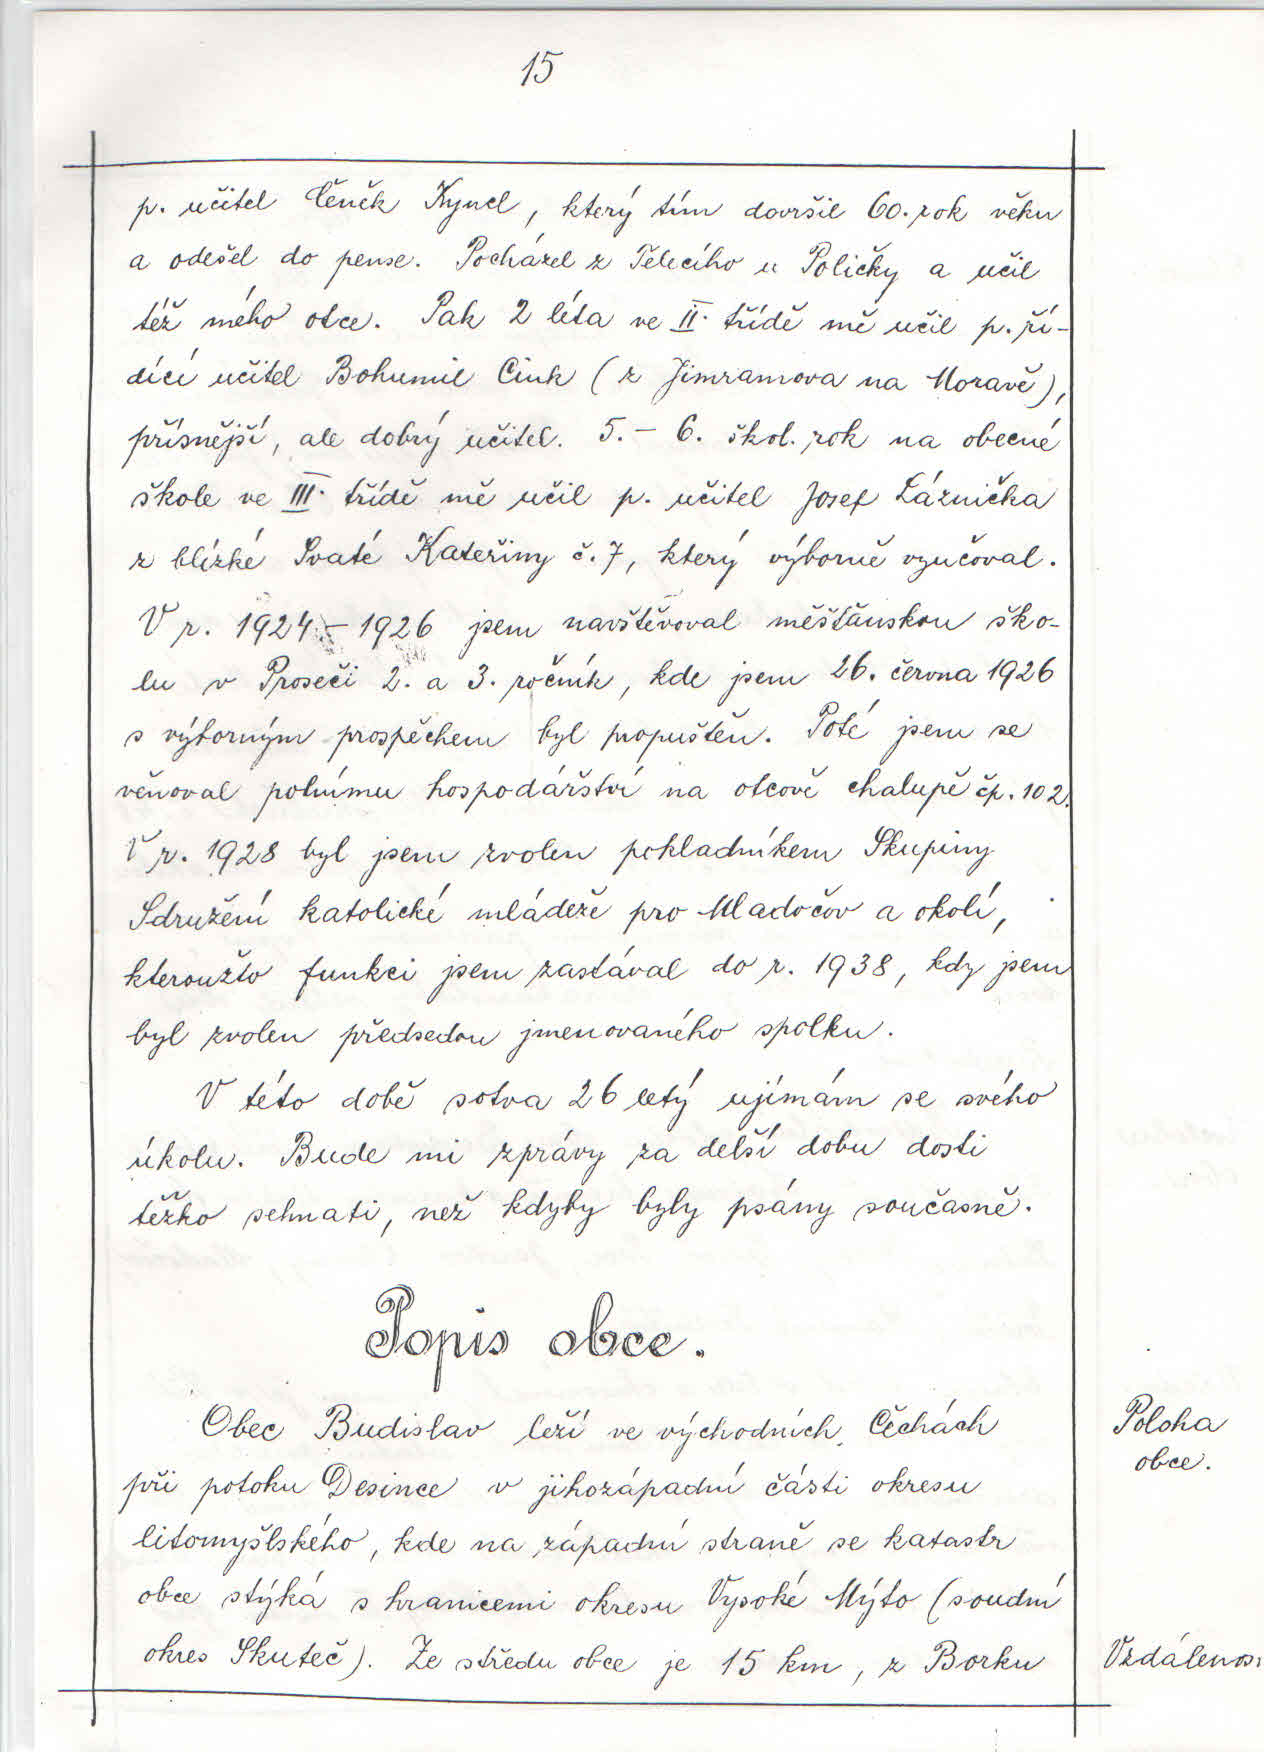 15
p. učitel Čeněk Kyncl, který tím dovršil 60. rok věku
a odešel do pense. Pocházel z Telecího u Poličky a učil
též mého otce. Pak 2 léta ve II. třídě mě učil p. ří-
dící učitel Bohumil Cink (z Jimramova na Moravě),
přísnější, ale dobrý učitel. 5. - 6. škol. rok na obecné
škole ve III. třídě mě učil p. učitel Josef Láznička
z blízké Svaté Kateřiny č. 7, který výborně vyučoval.
V r. 1924 - 1926 jsem navštěvoval měšťanskou ško-
lu v Proseči 2. a 3. ročník, kde jsem 26. června 1926
s výborným prospěchem byl propuštěn. Poté jsem se
věnoval polnímu hospodářství na otcově chalupě čp. 102.
V r. 1928 byl jsem zvolen pokladníkem Skupiny
Sdružení katolické mládeže pro Mladočov a okolí,
kteroužto funkci jsem zastával do r. 1938, kdy jsem
byl zvolen předsedou jmenovaného spolku.
V této době sotva 26 letý ujímám se svého
úkolu. Bude mi zprávy za delší dobu dosti
těžko sehnati, než kdyby byly psány současně.
Popis obce.
Obec Budislav leží ve východních Čechách
Poloha
obce.
při potoku Desince v jihozápadní části okresu
litomyšlského, kde na západní straně se katastr
obce stýká s hranicemi okresu Vysoké Mýto (soudní
okres Skuteč). Ze středu obce je 15 km, z Borku
Vzdálenos